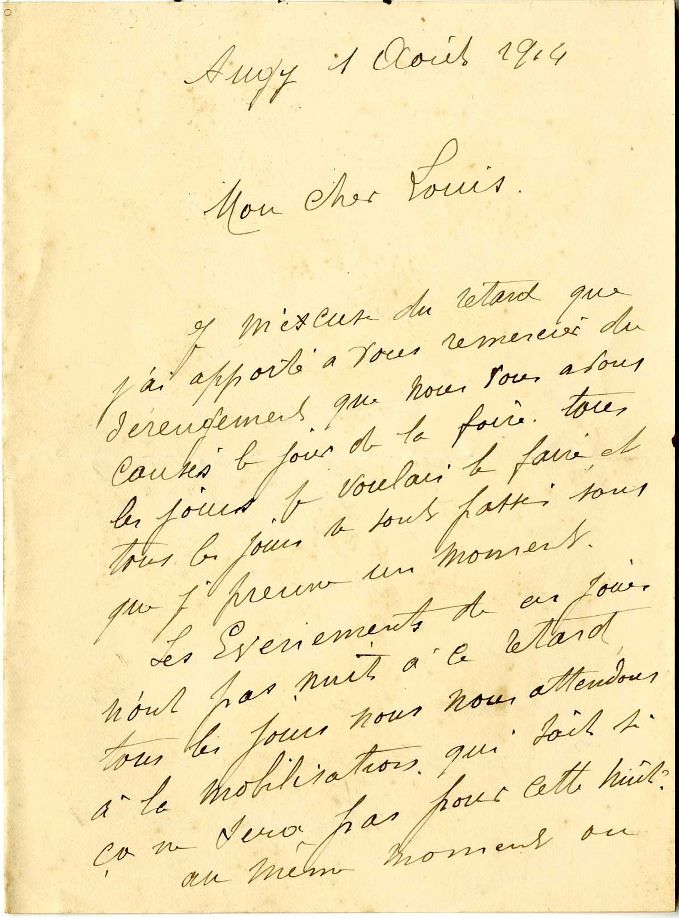 Augy 1 Août 1914
Mon cher Louis.
J m'excuse du retard que
j'ai apporté a vous remercier du
derengement que nous vous avons
causés le jour de la foire. tous
les jours je voulais le faire, et
tous les jours se sont passés sans
que j' prenne un moment.
Les Evenements de ces jours
n'ont pas nuit à ce retard,
tous les jours nous nous attendons
à la mobilisation. qui sait si
ça ne sera pas pour cette nuit.
au même moment ou